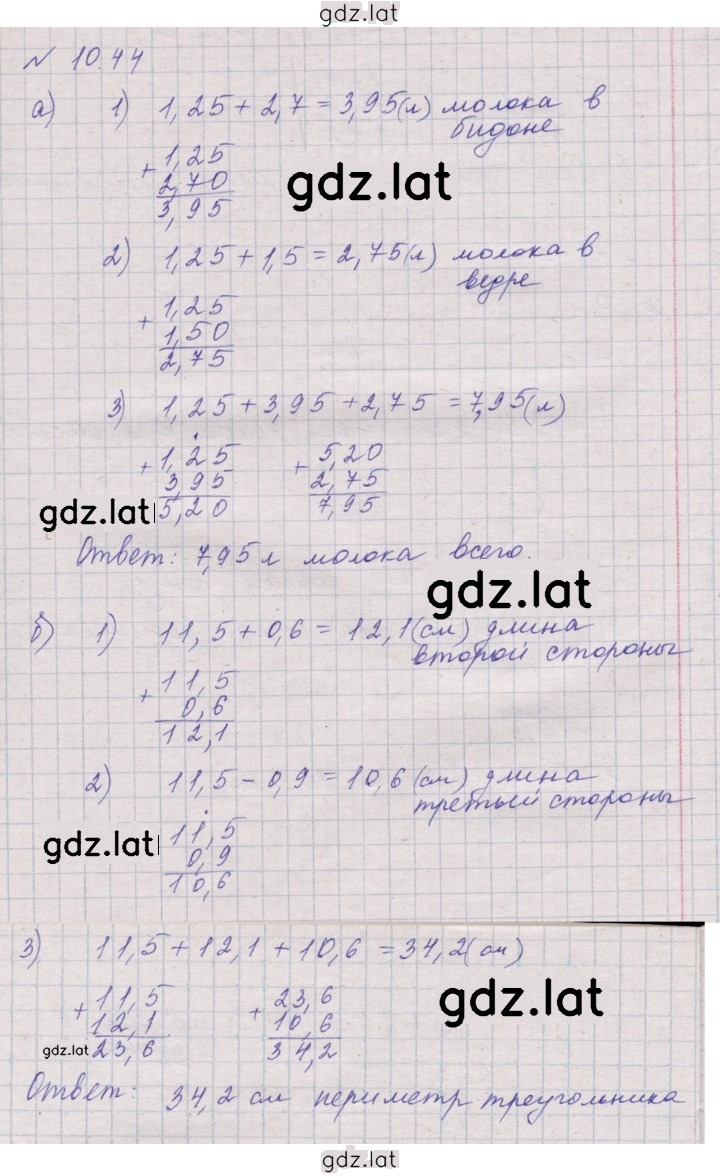 gdz.lat
№ 10.44
а) 1) 1,25 + 2,7 = 3,95(л) молока в
бидоне
+ 1,25
2,70
3,95
gdz.lat
2) 1,25 + 1,5 = 2,75(л) молока в
ведре
+ 1,25
1,50
2,75
3) 1,25 + 3,95 + 2,75 = 7,95(л)
+ 1,25 + 5,20
3,95 2,75
5,20 7,95
gdz.lat
Ответ: 7,95 л молока всего.
gdz.lat
б) 1) 11,5 + 0,6 = 12,1(см) длина
второй стороны
+ 11,5
0,6
12,1
2) 11,5 - 0,9 = 10,6 (см) длина
третьый стороны
11,5
0,9
10,6
gdz.lat
3) 11,5 + 12,1 + 10,6 = 34,2(см)
+ 11,5 + 23,6
12,1 10,6
23,6 34,2
gdz.lat
gdz.lat
Ответ: 34,2 см периметр треугольника
gdz.lat